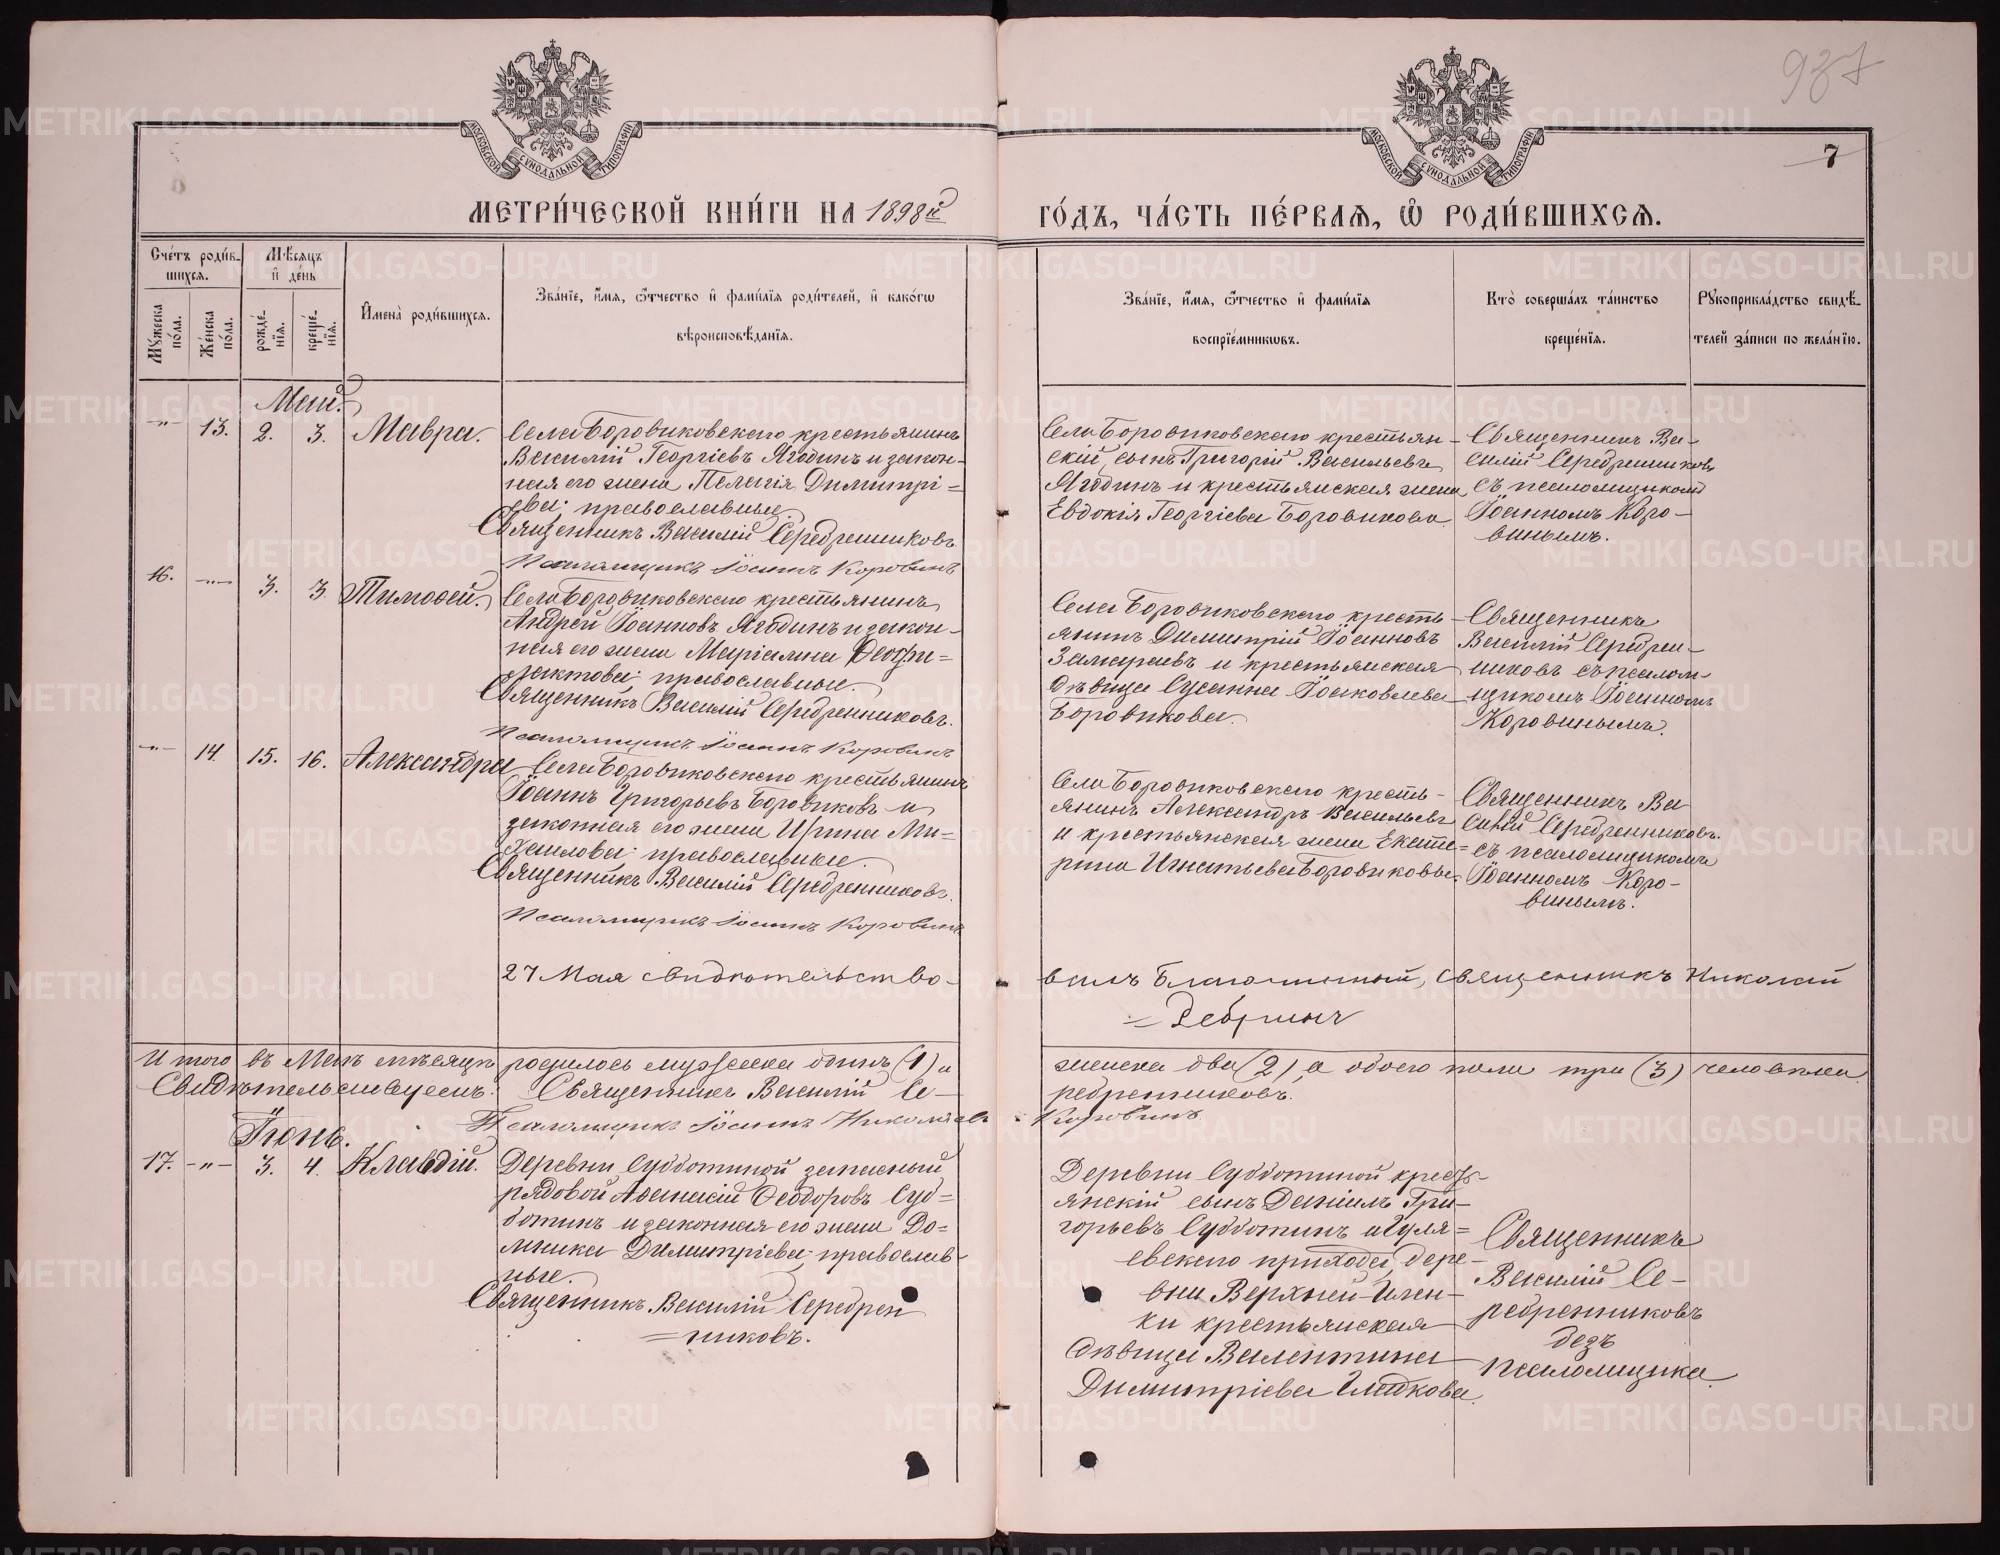 937
7
МОСКОВСКОЙ СѴНОДАЛЬНОЙ ТИПОГРАФІИ
МОСКОВСКОЙ СѴНОДАЛЬНОЙ ТИПОГРАФІИ
МЕТРИ́ЧЕСКОЙ КНИ́ГИ НА 1898й
ГО́ДЪ, ЧА́СТЬ ПЕ́РВАѦ, Ѽ РОДИ́ВШИХСѦ.
Сче́тъ роди́в-
шихсѧ.
Мꙋжеска по́ла.
Же́нска по́ла.
Мѣсѧцъ
и҆ де́нь
рожде́-
нїѧ.
креще́-
нїѧ.
И҆мена̀ роди́вшихсѧ.
Зва́нїе, и҆́мѧ, ѻ҆́тчество и҆ фами́лїѧ роди́телей, и҆ како́гѡ
вѣроисповѣ́данїѧ.
Зва́нїе, и҆́мѧ, ѻ҆́тчество и҆ фами́лїѧ
воспрїе́мникѡвъ.
Кто̀ соверша́лъ та́инство
креще́нїѧ.
Рꙋкоприкла́дство свидѣ́-
телей за́писи по жела́нїю.
Май.
-"- 13. 2. 3. Мавра.
Села Боровиковскаго крестьянинъ
Василій Георгіевъ Ягодинъ и закон-
ная его жена Пелагія Димитрі=
ева; православные.
Священникъ Василій Серебренниковъ
Псаломщикъ Іоаннъ Коровинъ
Села Боровиковскаго крестьян-
скій сынъ Григорій Васильевъ
Ягодинъ и крестьянская жена
Евдокія Георгіева Боровикова
Священникъ Ва-
силій Серебренниковъ
съ псаломщикомъ
Іоанномъ Коро-
винымъ.
16. -"- 3. 3. Тимоѳей.
Села Боровиковскаго крестьянинъ
Андрей Іоанновъ Ягодинъ и закон-
ная его жена Маріамна Ѳеофи=
лактова; православные.
Священникъ Василій Серебренниковъ.
Псаломщикъ Іоаннъ Коровинъ
Села Боровиковскаго кресть-
янинъ Димитрій Іоанновъ
Замараевъ и крестьянская
дѣвица Сусанна Іаковлева
Боровикова.
Священникъ
Василій Серебрен-
никовъ съ псалом-
щикомъ Іоанномъ
Коровинымъ.
-"- 14. 15. 16. Александра
Села Боровиковскаго крестьянинъ
Іоаннъ Григорьевъ Боровиковъ и
законная его жена Ирина Ми=
хаилова; православные.
Священникъ Василій Серебренниковъ.
Псаломщикъ Іоаннъ Коровинъ
Села Боровиковскаго кресть-
янинъ Александръ Васильевъ
и крестьянская жена Екате=
рина Игнатьева Боровиковы.
Священникъ Ва
силій Серебренниковъ.
съ псаломщикомъ
Іоанномъ Коро-
винымъ.
27 Мая свидѣтельство-
валъ Благочинный, священникъ Николай
Итого въ Маѣ мѣсяцѣ родилось мужеска одинъ (1) и
женска два (2), а обоего пола три (3) человѣка.
Свидѣтельствуемъ: Священникъ Василій Се-
ребренниковъ.
Псаломщикъ Іоаннъ Николаевъ
Коровинъ
Іюнь.
17. -"- 3. 4. Клавдій.
Деревни Субботиной запасный
рядовой Аѳанасій Ѳеодоровъ Суб=
ботинъ и законная его жена До=
мника Димитріева; православ-
ные.
Священникъ Василій Серебрен
=никовъ.
Деревни Субботиной кресть-
янскій сынъ Даніилъ Гри-
горьевъ Субботинъ и Гуля=
евскаго прихода, дере-
вни Верхней-Илен-
ки крестьянская
дѣвица Валентина
Димитріева Гладкова.
Священникъ
Василій Се-
ребренниковъ
безъ
псаломщика.
METRIKI.GASO-URAL.RU